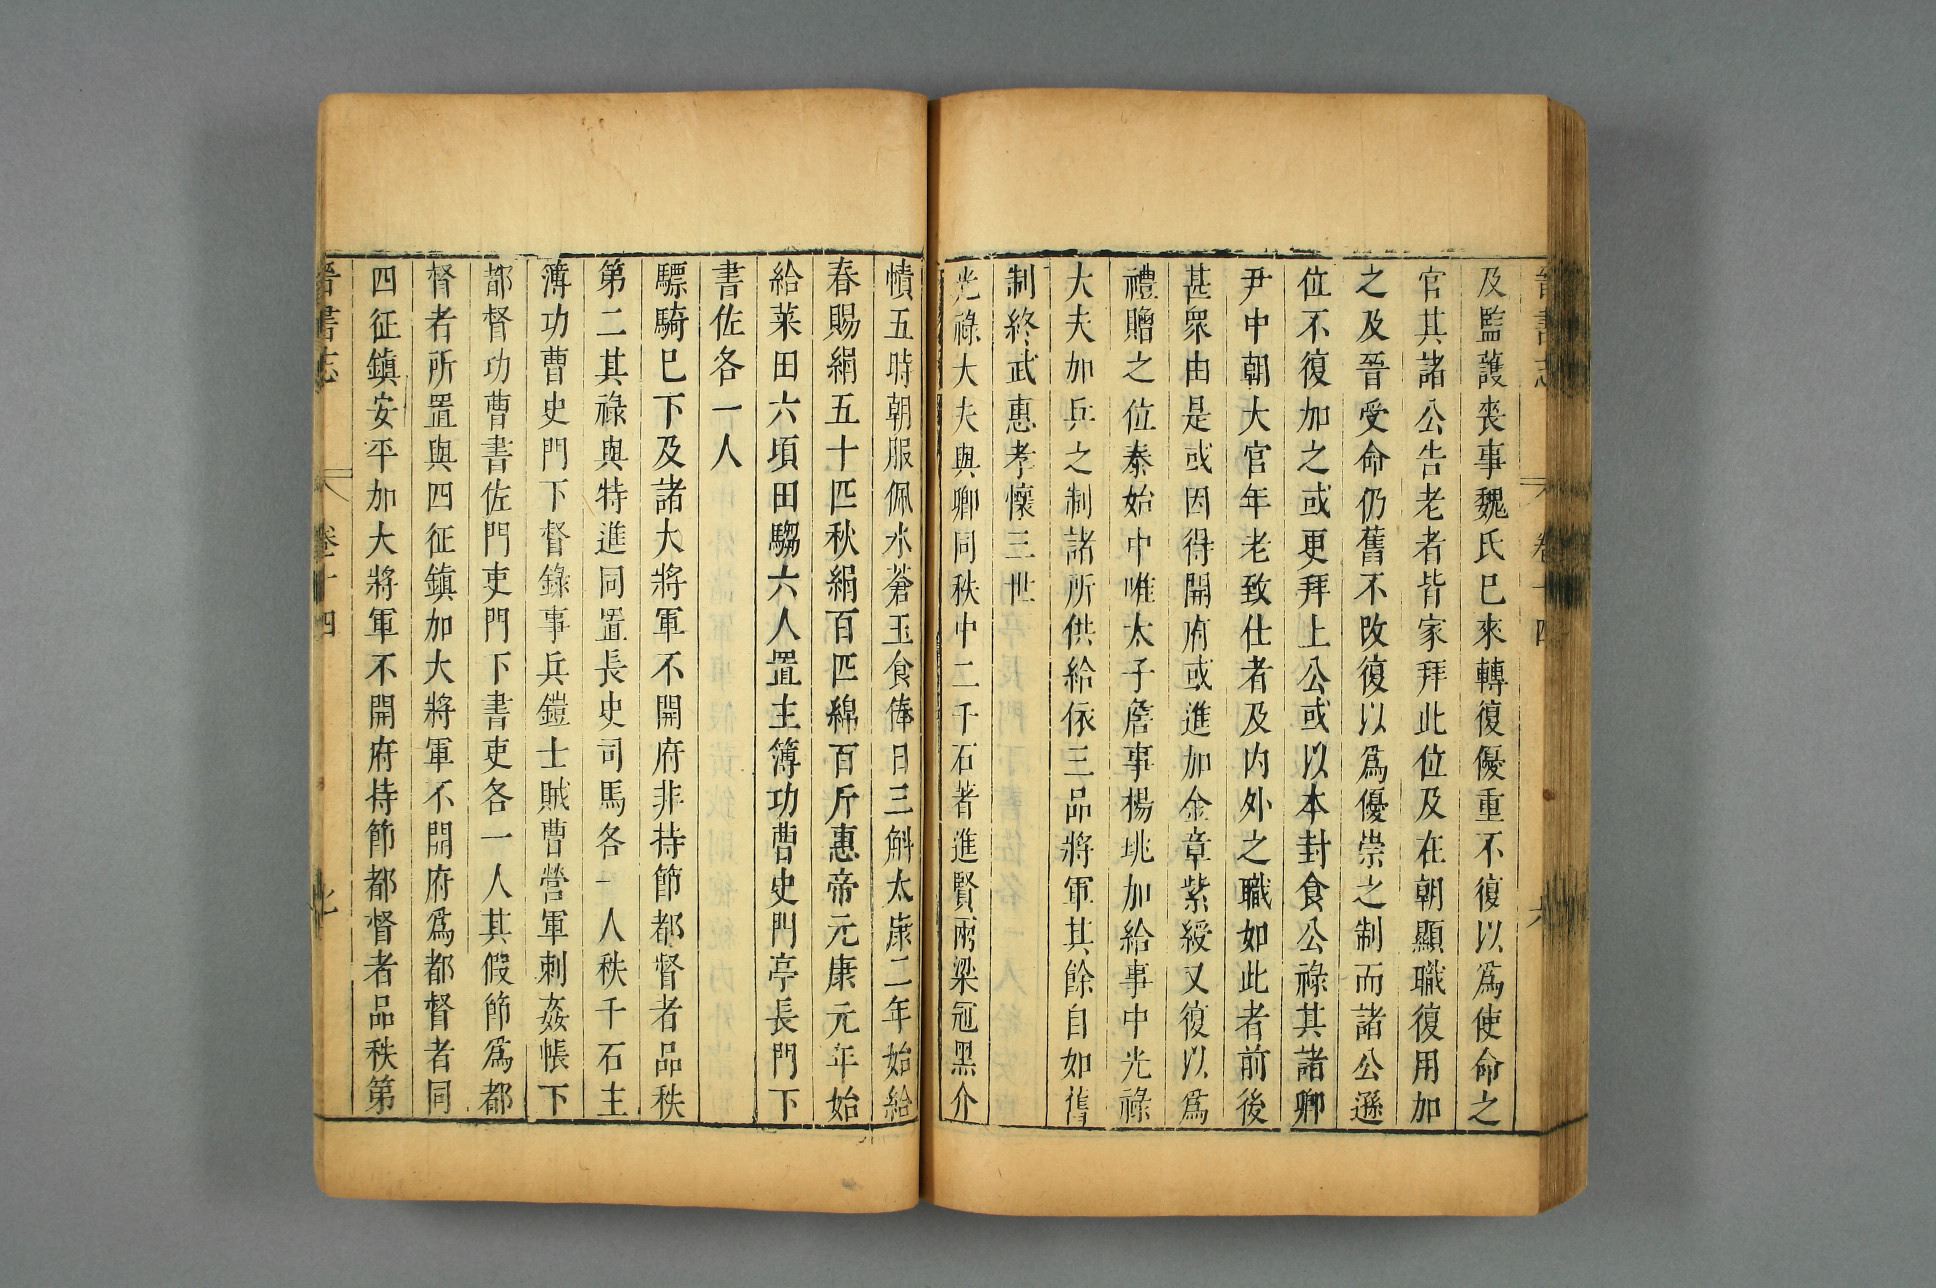 晉書志 卷十四 六
及監護喪事魏氏已來轉復優重不復以爲使命之
官其諸公告老者皆家拜此位及在朝顯職復用加
之及晉受命仍舊不改復以爲優崇之制而諸公遜
位不復加之或更拜上公或以本封食公祿其諸卿
尹中朝大官年老致仕者及內外之職如此者前後
甚眾由是或因得開府或進加金章紫綬又復以爲
禮贈之位泰始中唯太子詹事楊珧加給事中光祿
大夫加兵之制諸所供給依三品將軍其餘自如舊
制終武惠孝懷三世
光祿大夫與卿同秩中二千石著進賢兩梁冠黑介
幘五時朝服佩水蒼玉食俸日三斛太康二年始給
春賜絹五十匹秋絹百匹綿百斤惠帝元康元年始
給菜田六頃田騶六人置主簿功曹史門亭長門下
書佐各一人
驃騎已下及諸大將軍不開府非持節都督者品秩
第二其祿與特進同置長史司馬各一人秩千石主
簿功曹史門下督錄事兵鎧士賊曹營軍刺姦帳下
都督功曹書佐門吏門下書吏各一人其假節爲都
督者所置與四征鎮加大將軍不開府爲都督者同
四征鎮安平加大將軍不開府持節都督者品秩第
晉書志 卷十四